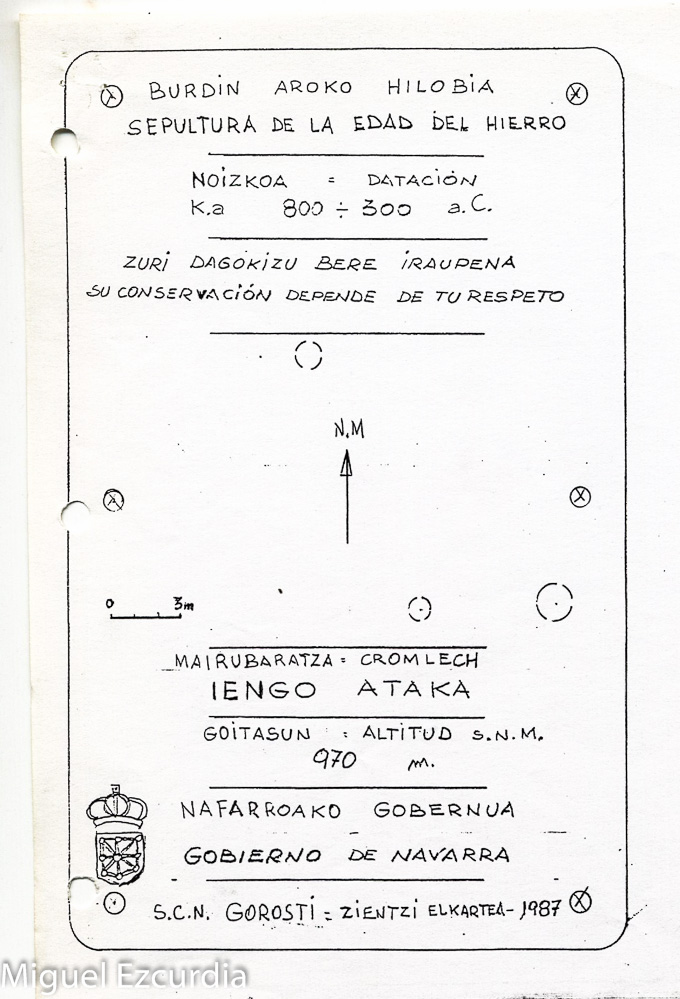 BURDIN AROKO HILOBIA
SEPULTURA DE LA EDAD DEL HIERRO
NOIZKOA = DATACIÓN
K.a 800 ÷ 300 a.C.
ZURI DAGOKIZU BERE IRAUPENA
SU CONSERVACIÓN DEPENDE DE TU RESPETO
N.M
0 3m
MAIRUBARATZA = CROMLECH
IENGO ATAKA
GOITASUN = ALTITUD S.N.M.
970 m.
NAFARROAKO GOBERNUA
GOBIERNO DE NAVARRA
S.C.N. GOROSTI = ZIENTZI ELKARTEA - 1987
Miguel Ezcurdia